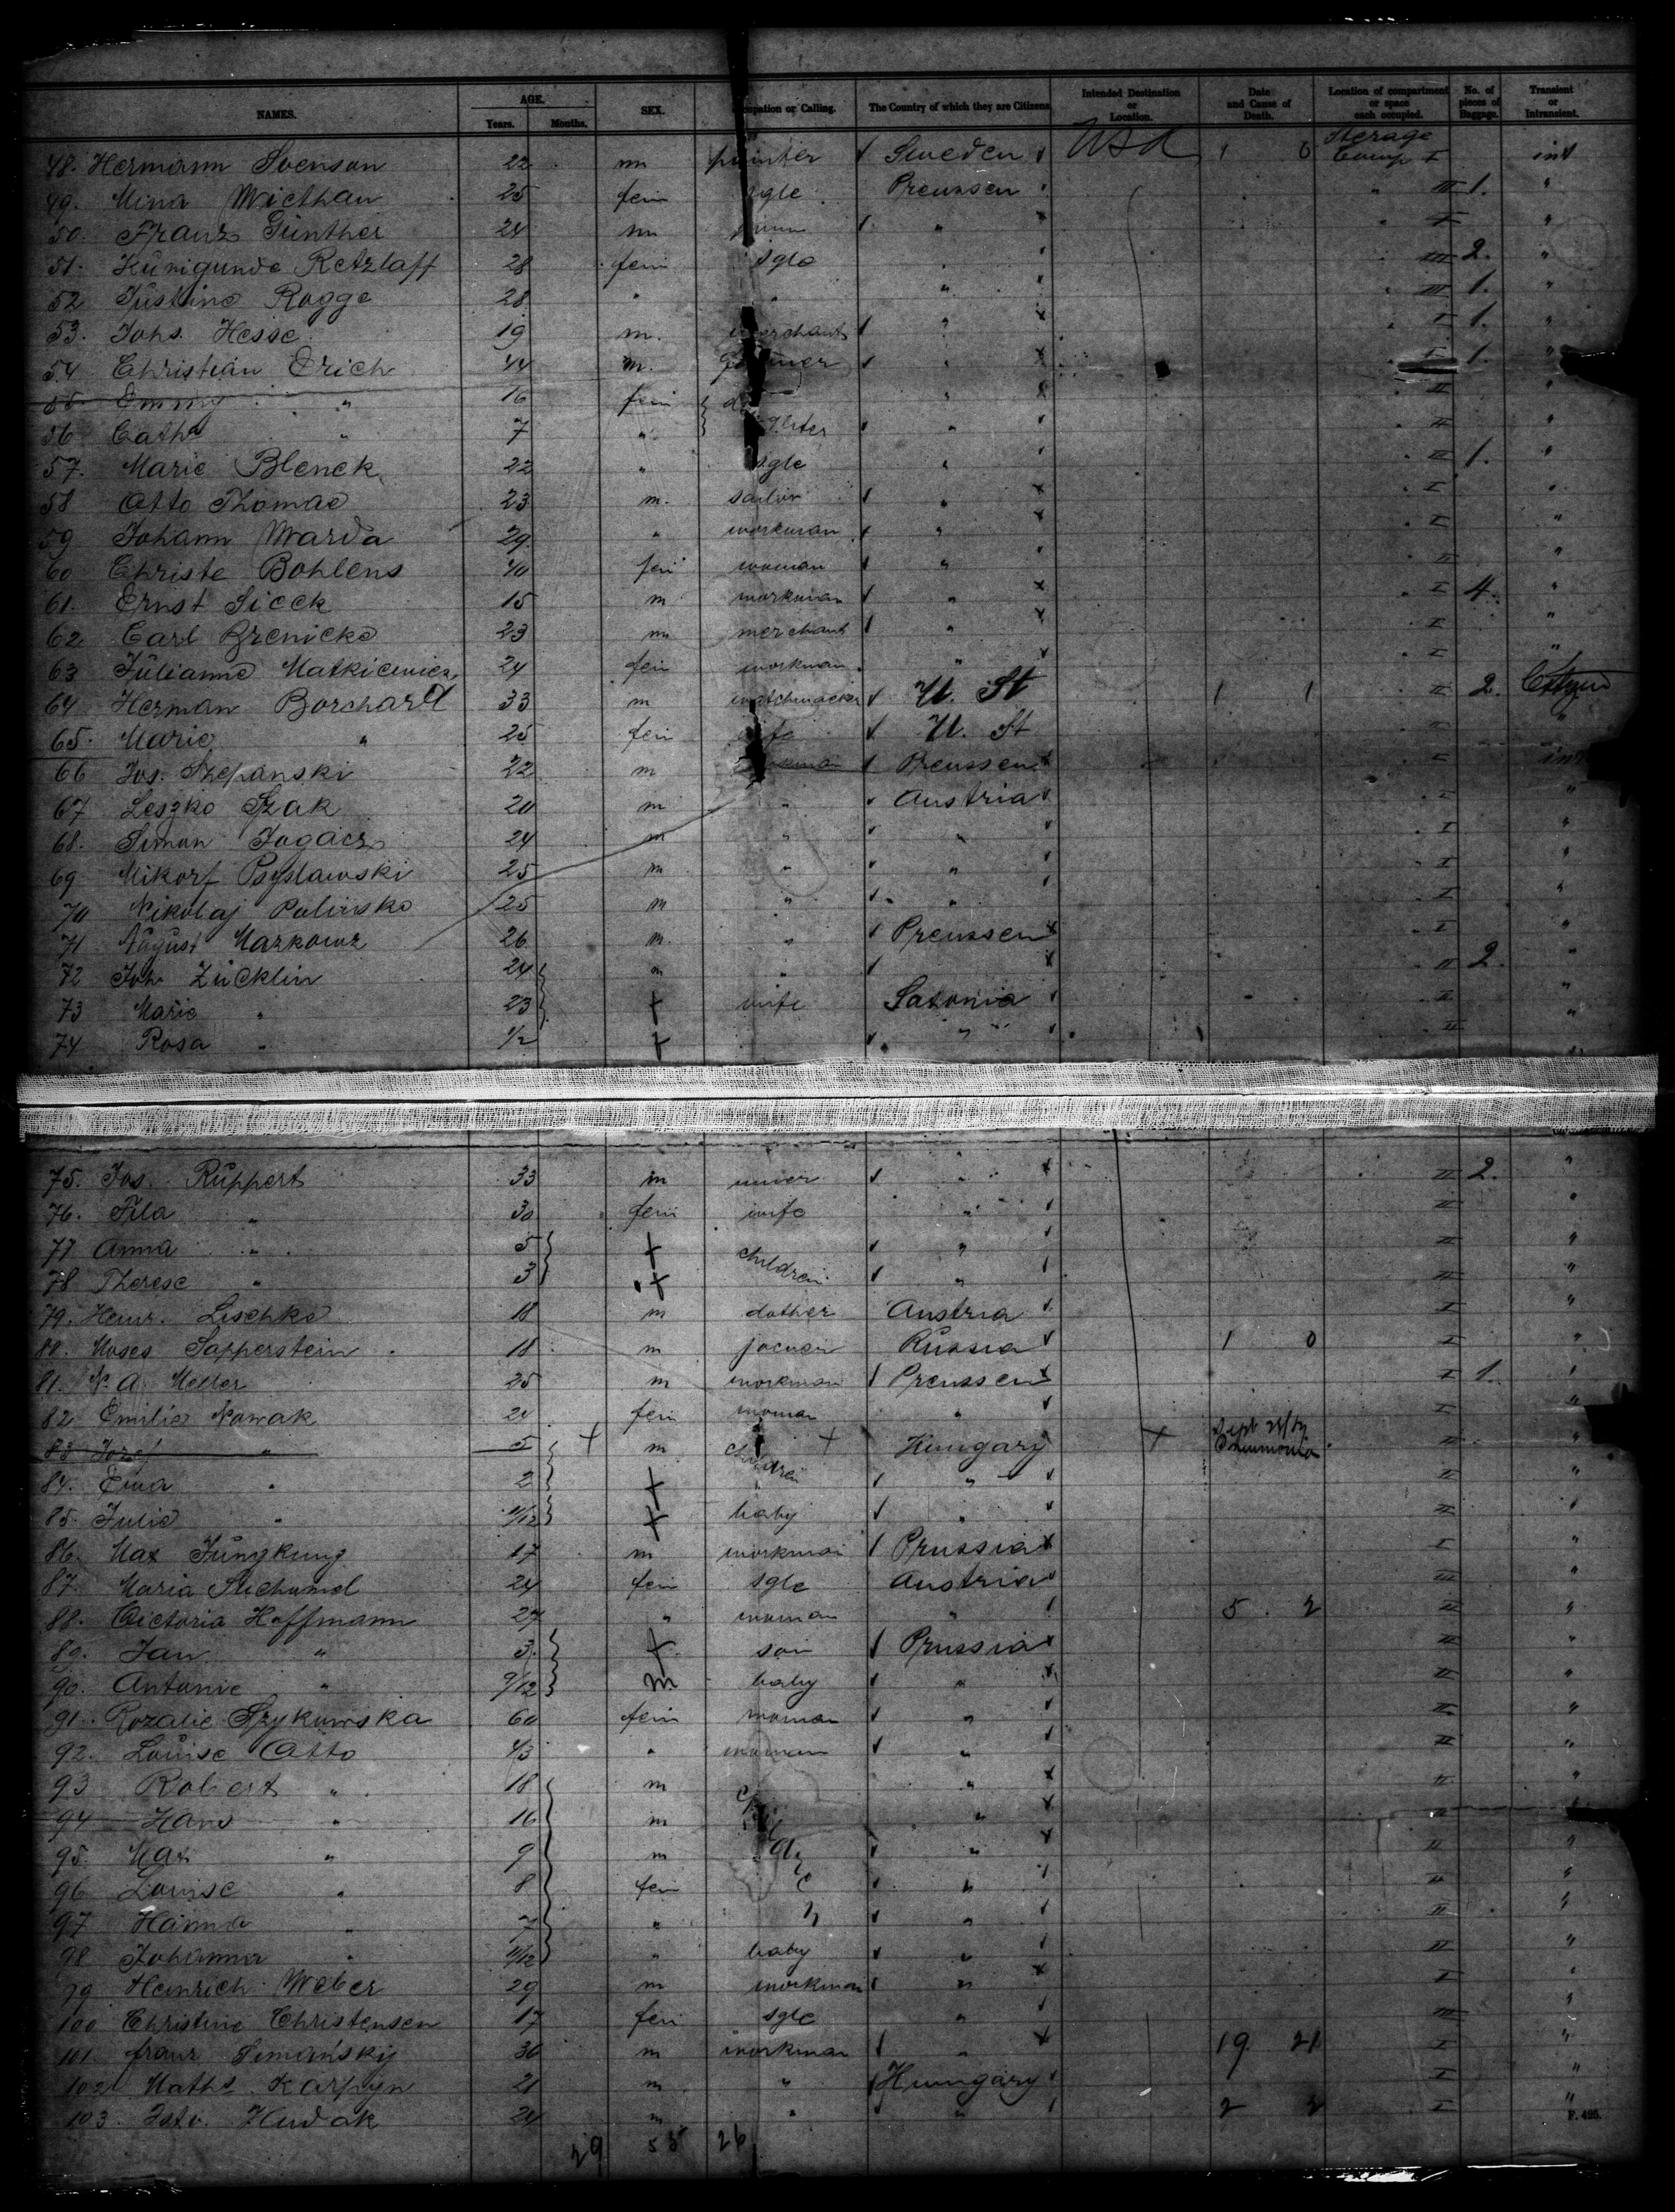 NAMES. AGE. Years. Months. SEX. upation or Calling. The Country of which they are Citizens Intended Destination or Location. Date and Cause of Death. Location of compartment or space each occupied. No. of pieces of Baggage. Transient or Intransient.
48. Hermann Svenson 22 m painter Sweden USA 1 0 Sterage Comp I int
49. Mina Wiethan 25 fem sgle Preussen " III 1. "
50. Franz Günther 24 m " I "
51. Kunigunde Retzlaff 28 fem sgle " III 2. "
52 Justine Rogge 28 " " " III 1. "
53. Johs. Hesse 19 m. merchant " I 1. "
54 Christian Erich 44 m. " I 1. "
55. Emmy " 16 fem " II "
56 Cath " 7 " " II "
57. Marie Blenek 22 " sgle " II 1. "
58 Otto Thomae 23 m. sailor " I "
59 Johann Warda 29 " workman " I "
60 Christe Bohlens 40 fem woman " II "
61. Ernst Sieck 15 m workman " I 4. "
62 Carl Brenicke 23 m merchant " I "
63 Julianne Matkiewicz 24 fem workman " I "
64 Herman Borchard 33 m watchmacker U. St 1 1 II 2.
65. Marie " 25 fem wife U. St II "
66 Jos. Szepanski 22 m workman Preussen I int
67 Leszko Szak 20 m " Austria I "
68. Simon Jogacz 24 m " " I "
69 Mikorf Psyslawski 25 m " " I "
70 Nikolaj Polinsko 25 m " " I "
71 August Markowz 26 m. " Preussen I "
72 Joh. Zücklin 24 m " II 2. "
73 Marie " 23 f wife Saxonia II "
74 Rosa " 1/2 f " II
75. Jos. Ruppert 33 m " II 2. "
76. " 30 fem wife " II "
77 Anna " 5 f children " II "
78 Therese " 3 f " II "
79. Heinr. Lischke 18 m Austria I "
80. Moses Sapperstein 18 m Russia 1 0 I "
81. N. A. Meller 25 m workman Preussen I 1. "
82 Emilie Nowak 24 fem woman " I "
83 Jozef " 5 + m children + Hungary + Sept Pneumonia II "
84. Ewa " 2 f " II "
85. Julie " 11/12 f baby " II "
86. Max Jungkung 17 m workman Prussia I "
87. Maria 24 fem sgle Austria III "
88. Victoria Hoffmann 27 " woman " 5 2 II "
89. Jan " 3 f son Prussia II "
90. Antonie " 9/12 m baby " II "
91. Rozalie Szykowska 60 fem woman " II "
92. Louise Otto 43 " woman " II "
93 Robert " 18 m " II "
94 Hans " 16 m " II "
95. Max " 9 m " II "
96 Louise " 8 fem " II "
97 Hanna " 7 " " II "
98 Johanna " 11/12 " baby " II "
99 Heinrich Weber 29 m workman " I "
100 Christine Christensen 17 fem sgle " III "
101. Franz Simanskij 30 m workman " 19 21 I "
102 Maths. Karpyn 21 m " Hungary I "
103. Istv. Hudak 24 m " " 2 2 I "
F. 495.
29 55 26